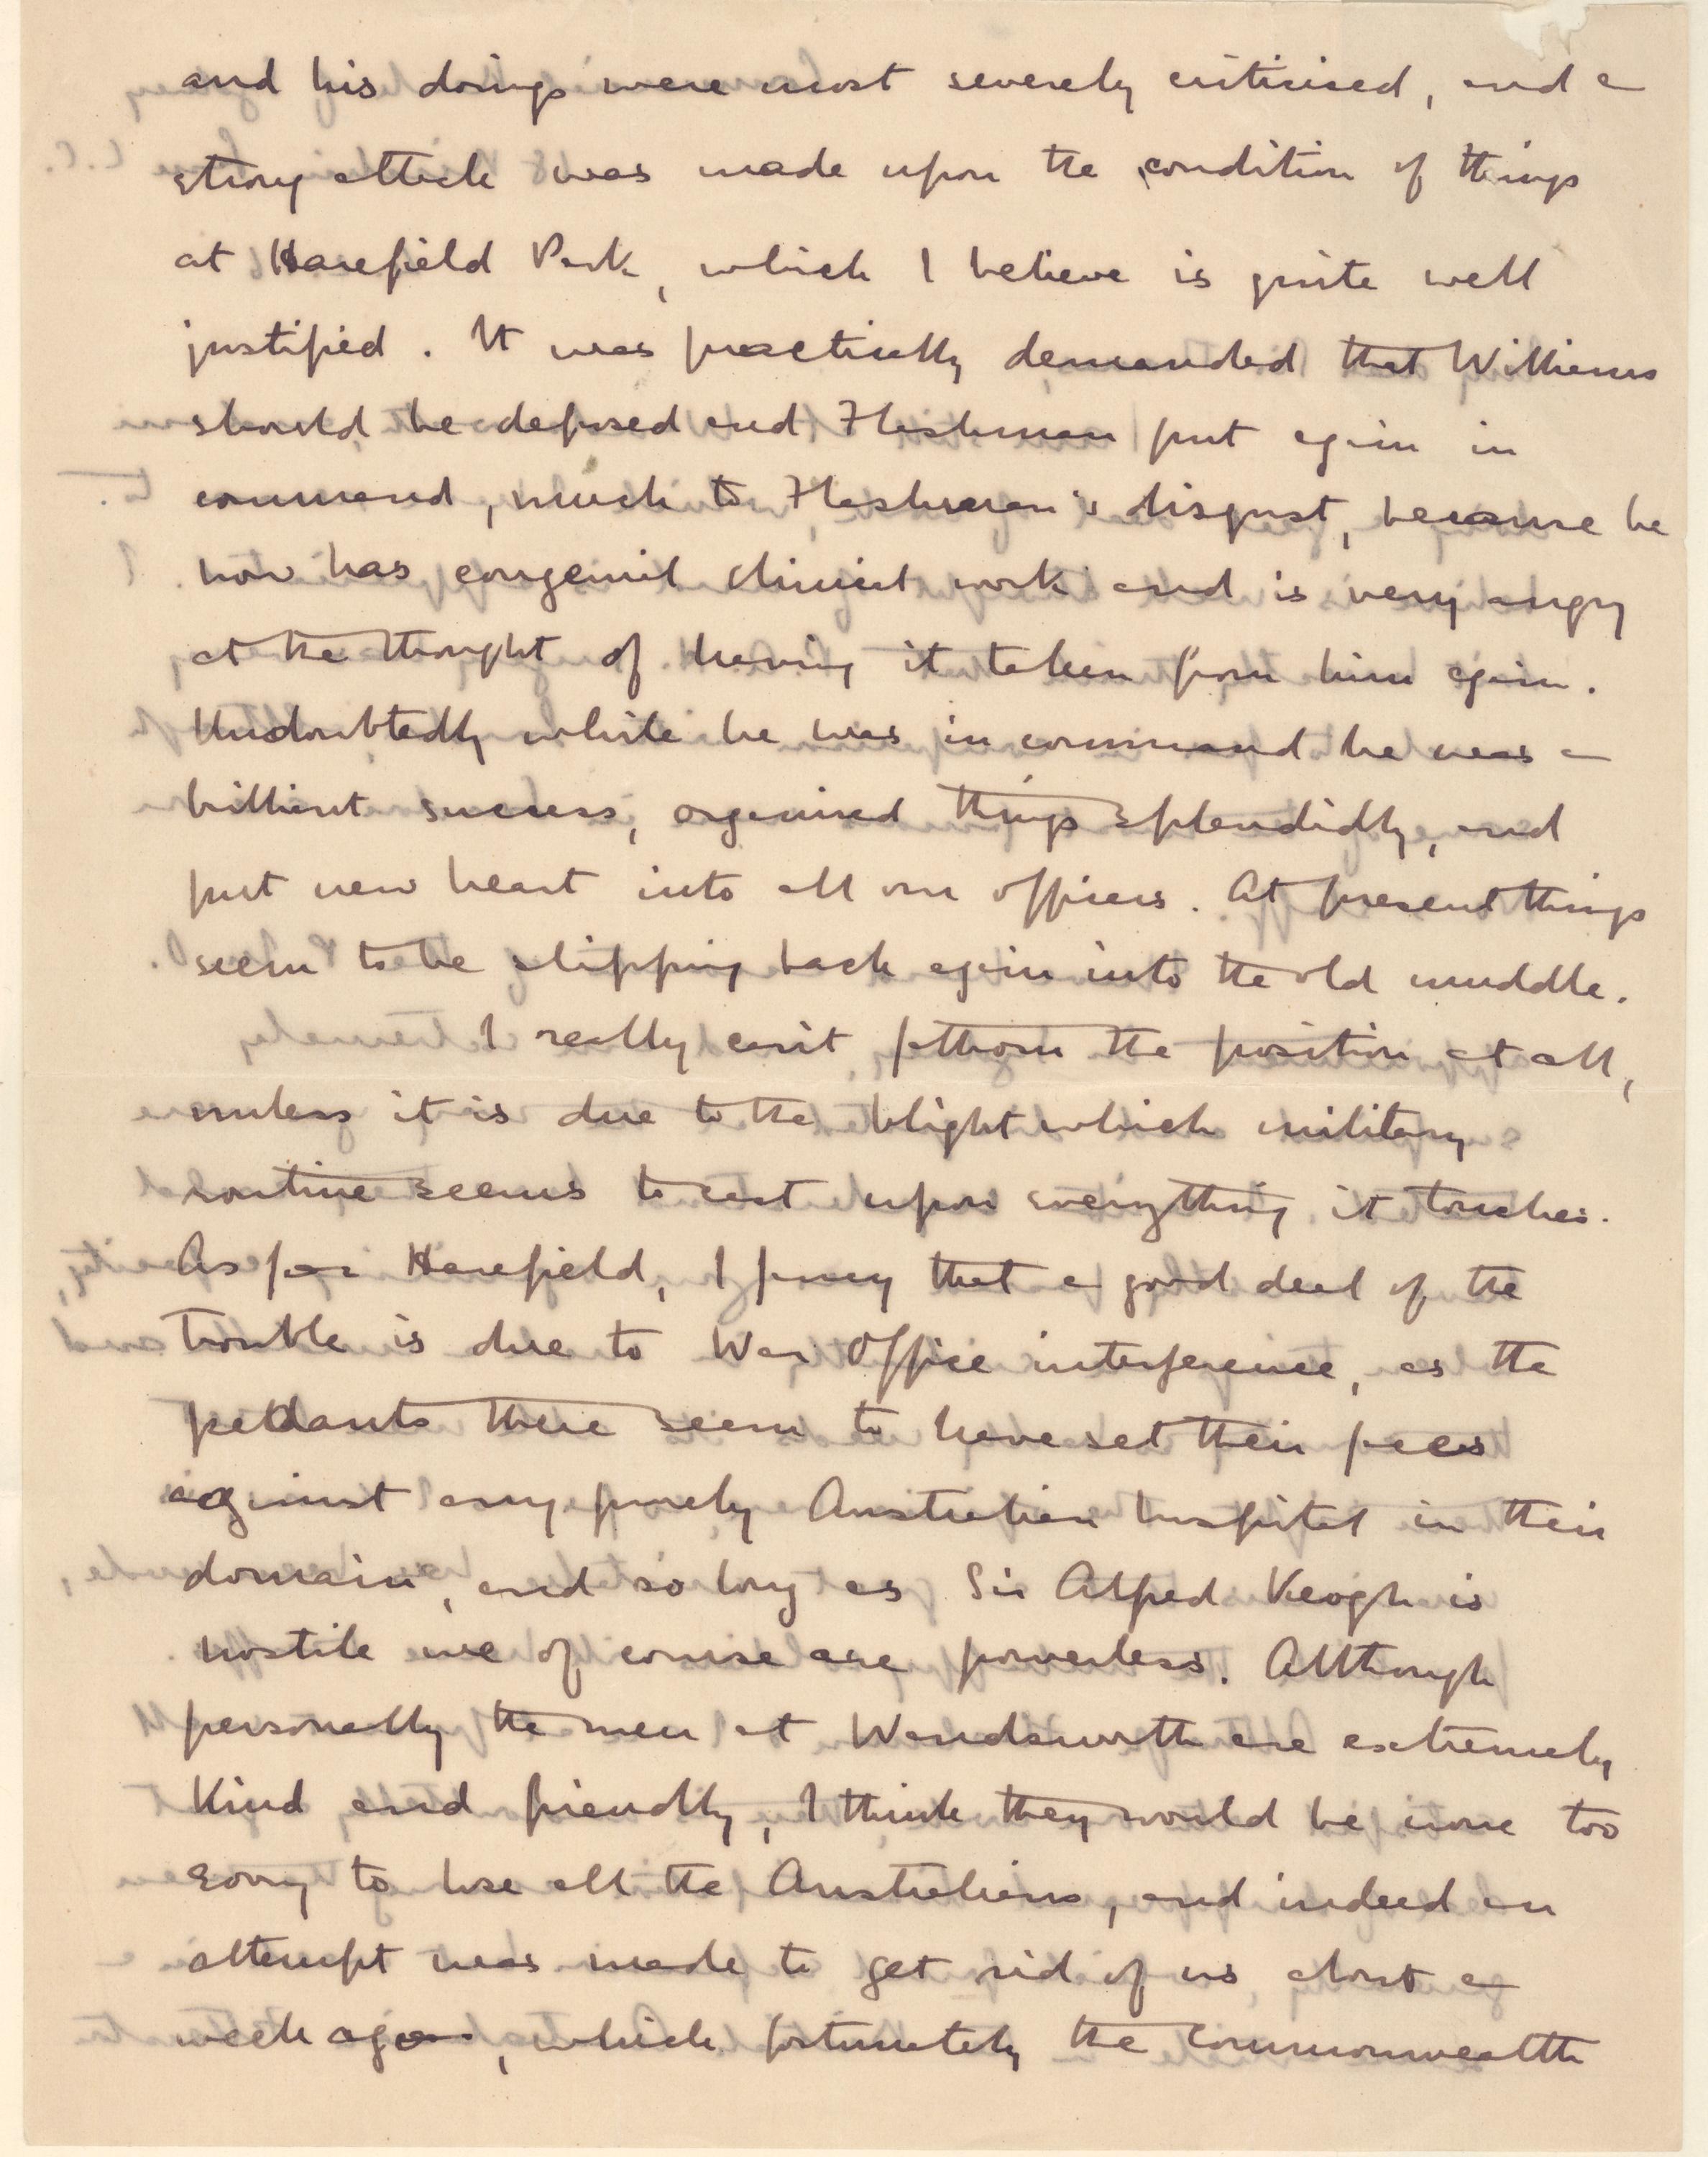 and his doings were most severely criticised, and a
strong attack was made upon the condition of things
at Harefield Park, which I believe is quite well
justified. It was practically demanded that Williams
should be deposed and Fleshman put again in
command, much to Fleshman's disgust, because he
now has congenial clinical work and is very angry
at the thought of having it taken from him again.
Undoubtedly while he was in command he was a
brilliant success, organised things splendidly, and
put new heart into all our officers. At present things
seem to be slipping back again into the old muddle.
I really can't fathom the position at all,
unless it is due to the blight which military
routine seems to cast upon everything it touches.
As for Harefield, I fancy that a good deal of the
trouble is due to War Office interference, as the
pedants there seem to have set their faces
against any purely Australian hospital in their
domain, and so long as Sir Alfred Keogh is
hostile we of course are powerless. Although
personally the men at Wandsworth are extremely
kind and friendly, I think they would be none too
sorry to lose all the Australians, and indeed an
attempt was made to get rid of us about a
week ago, which fortunately the Commonwealth